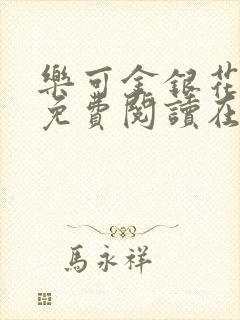 樂可金銀花
免費閱讀在
馬永祥